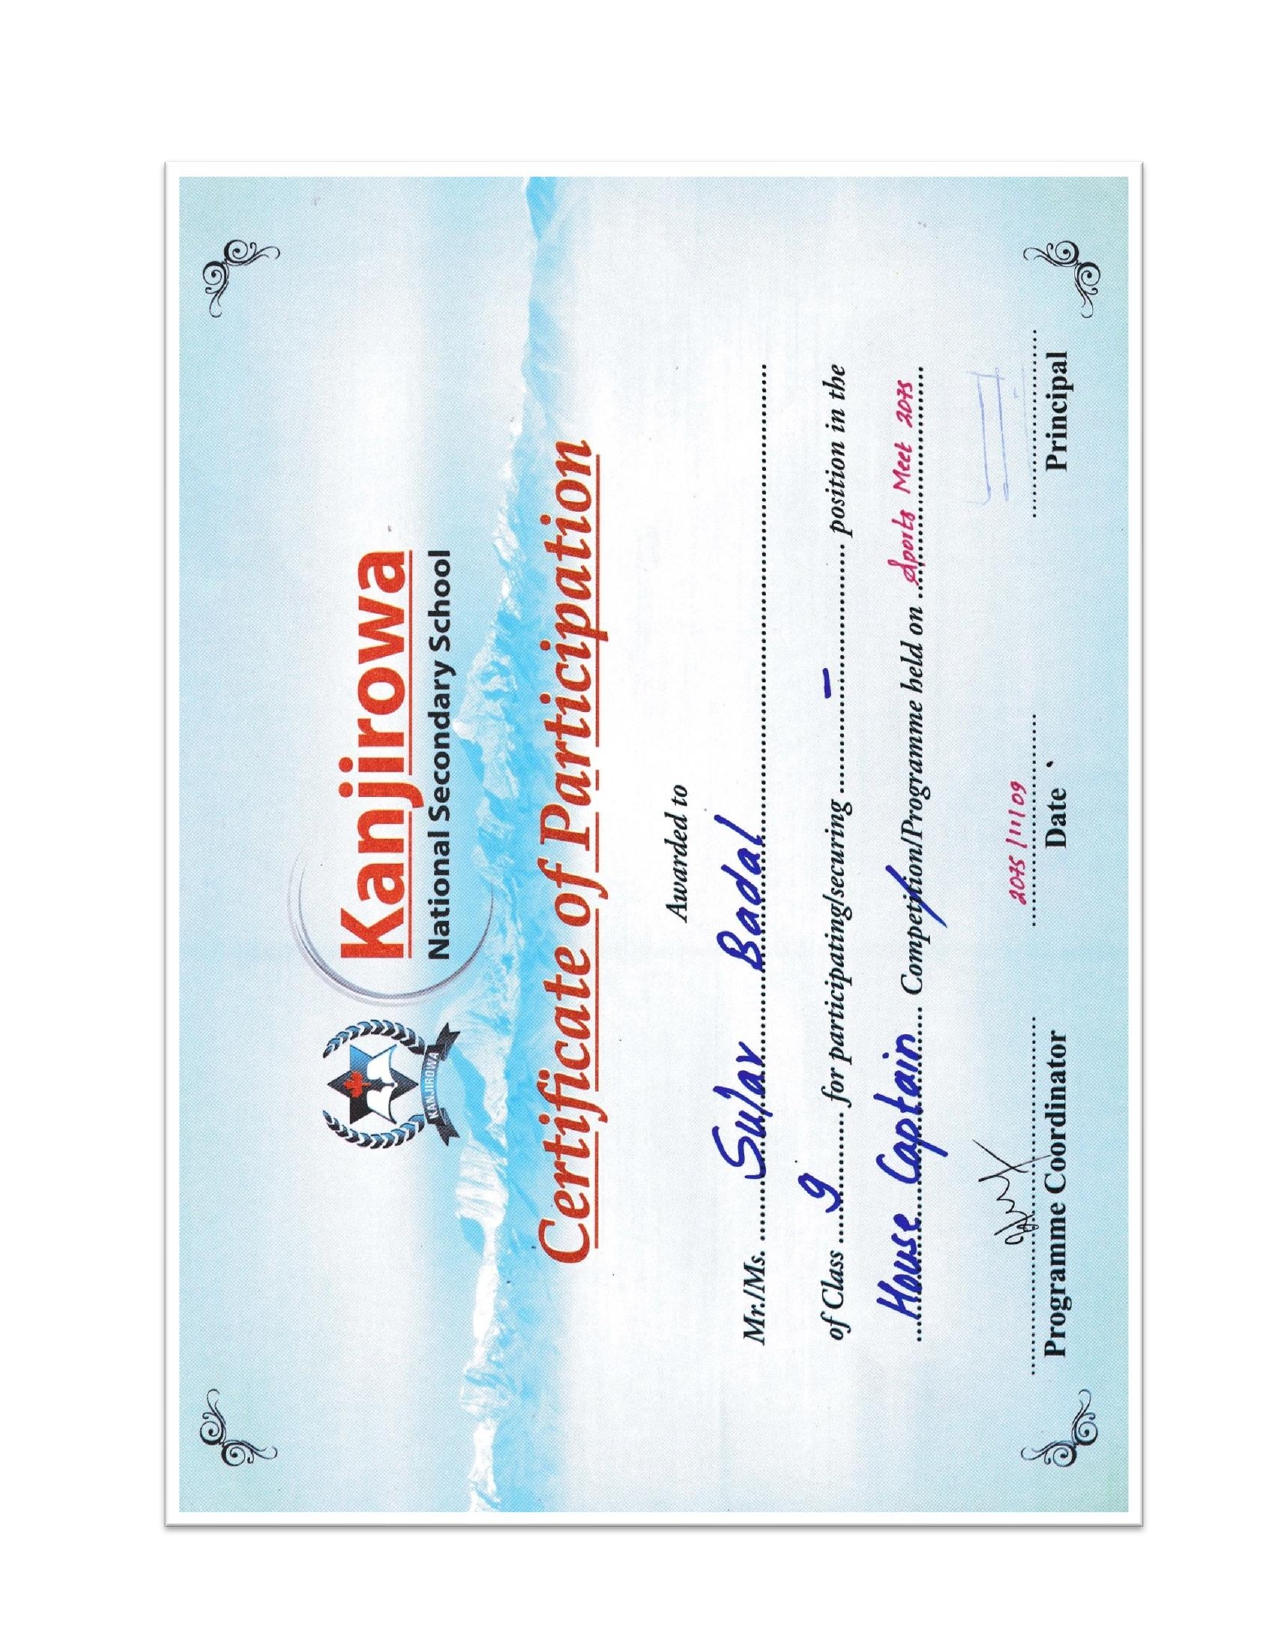 Kanjirowa
National Secondary School
KANJIROWA
Certificate of Participation
Awarded to
Mr./Ms. Sulav Badal
of Class 9 for participating/securing - position in the
House Captain Competition/Programme held on Sports Meet 2075
2075/11/09
Programme Coordinator Date Principal